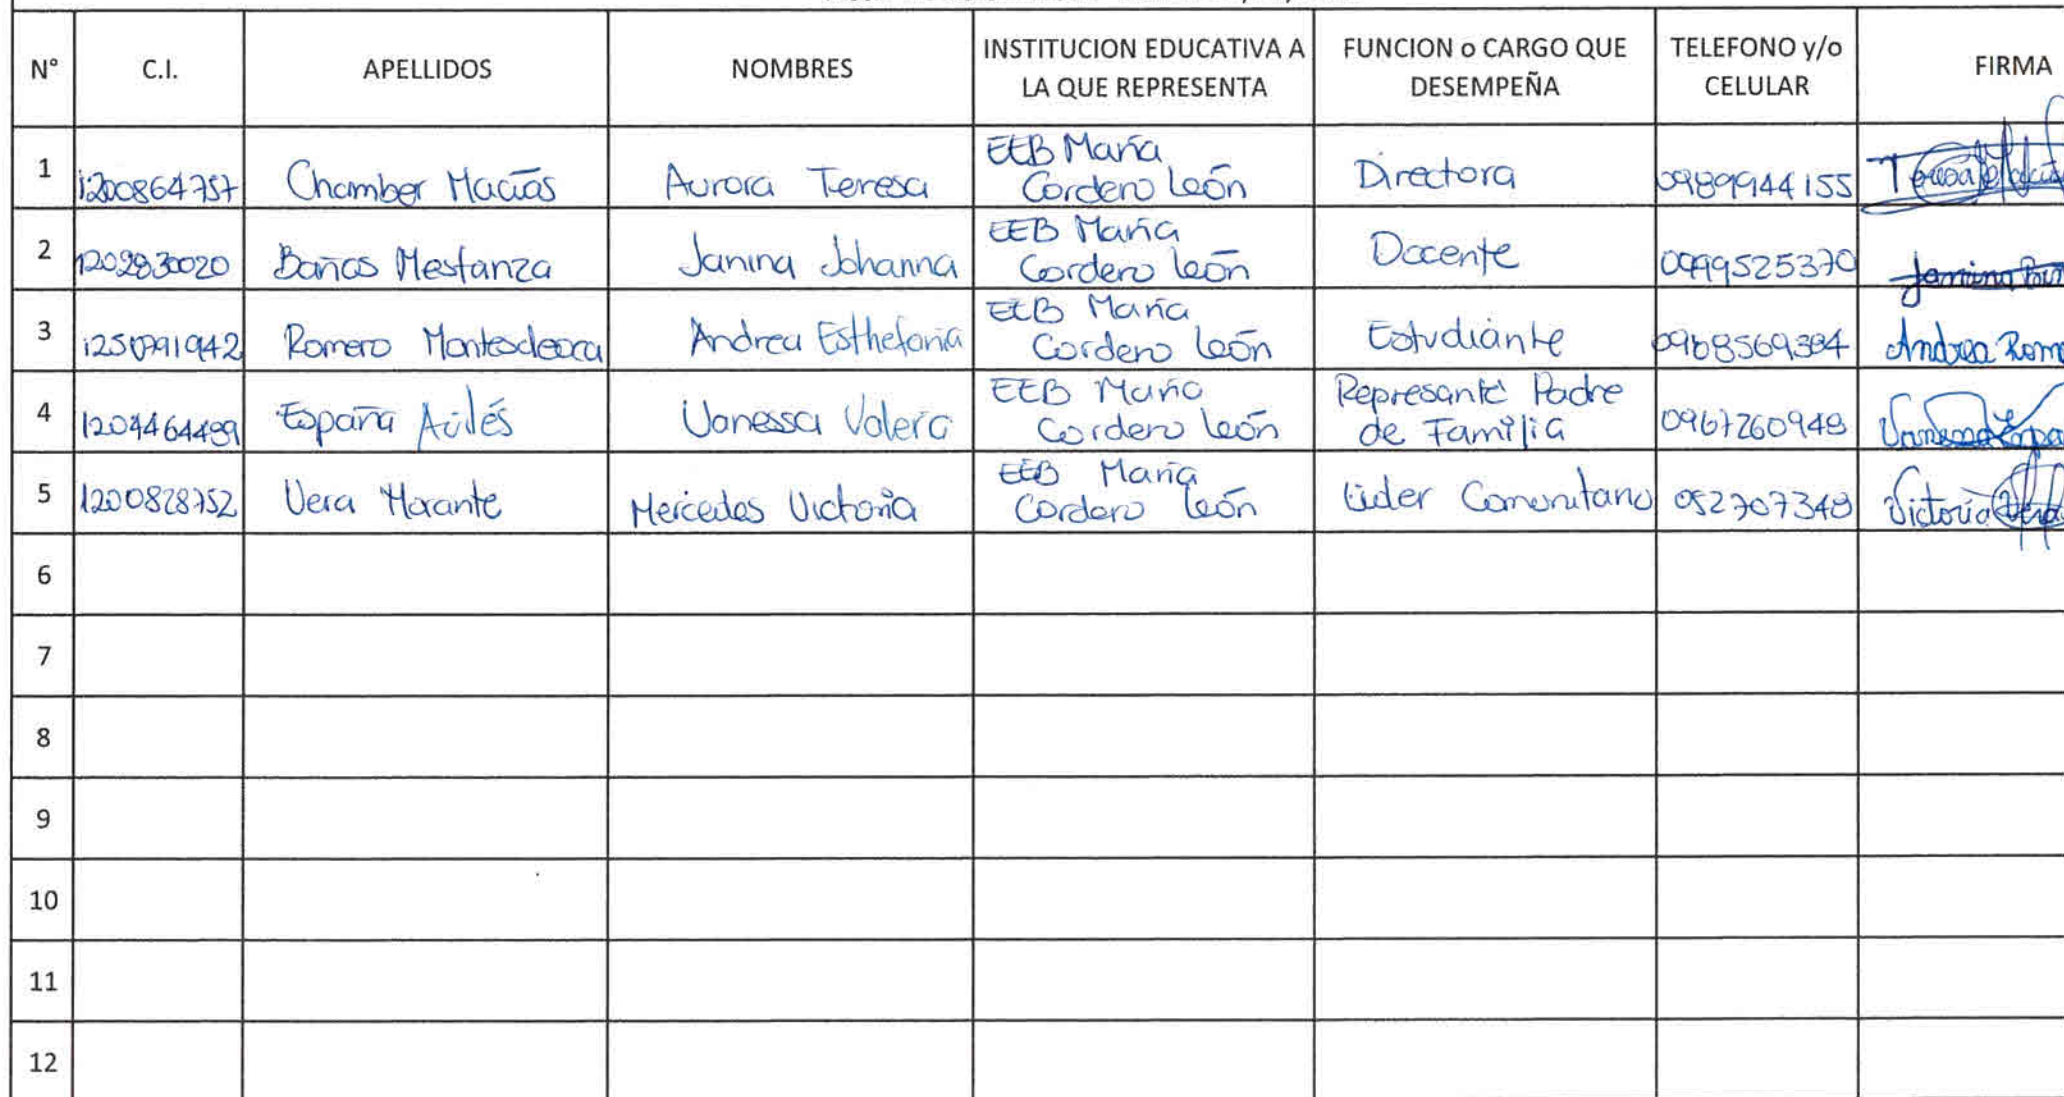 N° C.I. APELLIDOS NOMBRES INSTITUCION EDUCATIVA A LA QUE REPRESENTA FUNCION o CARGO QUE DESEMPEÑA TELEFONO y/o CELULAR FIRMA
1 1200864757 Chamber Macías Aurora Teresa EEB María Cordero León Directora 0989944155 Teresa
2 1202930020 Baños Mestanza Janina Johanna EEB María Cordero León Docente 0999525370 Janina
3 Romero Montesdeoca Andrea Esthefanía EEB María Cordero León Estudiante 0968569384 Andrea Rom
4 1204464499 España Avilés Vanessa Valeria EEB María Cordero León Represante Padre de Familia 0967260948 Vanessa Espa
5 1200828752 Vera Morante Mercedes Victoria EEB María Cordero León Líder Comunitario 052707348 Victoria Vera
6
7
8
9
10
11
12